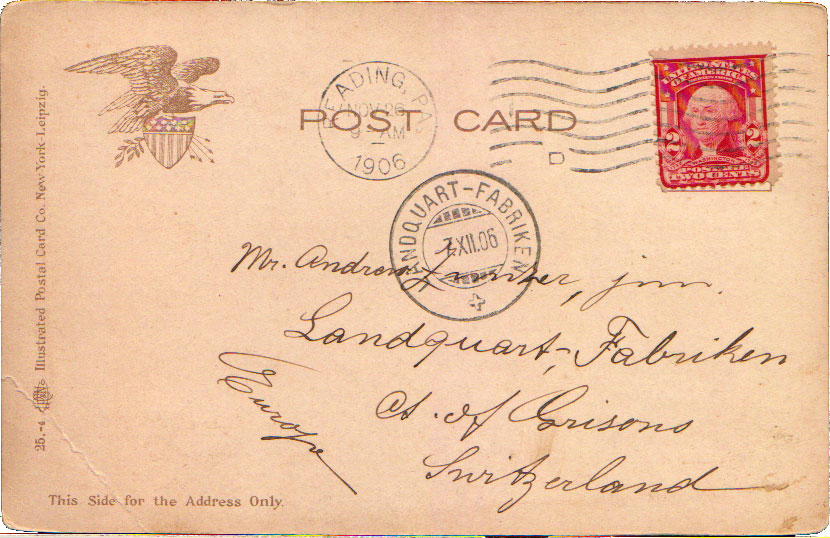 READING, PA.
NOV 26
9- AM
1906
POST CARD
D
UNITED STATES
OF AMERICA
2 2
POSTAGE
TWO CENTS
LANDQUART-FABRIKEN
XII.06
Mr. Andrew jun.
Landquart-Fabriken
Ct. of Grisons
Switzerland
Europe
25.-4 Illustrated Postal Card Co. New-York-Leipzig.
This Side for the Address Only.